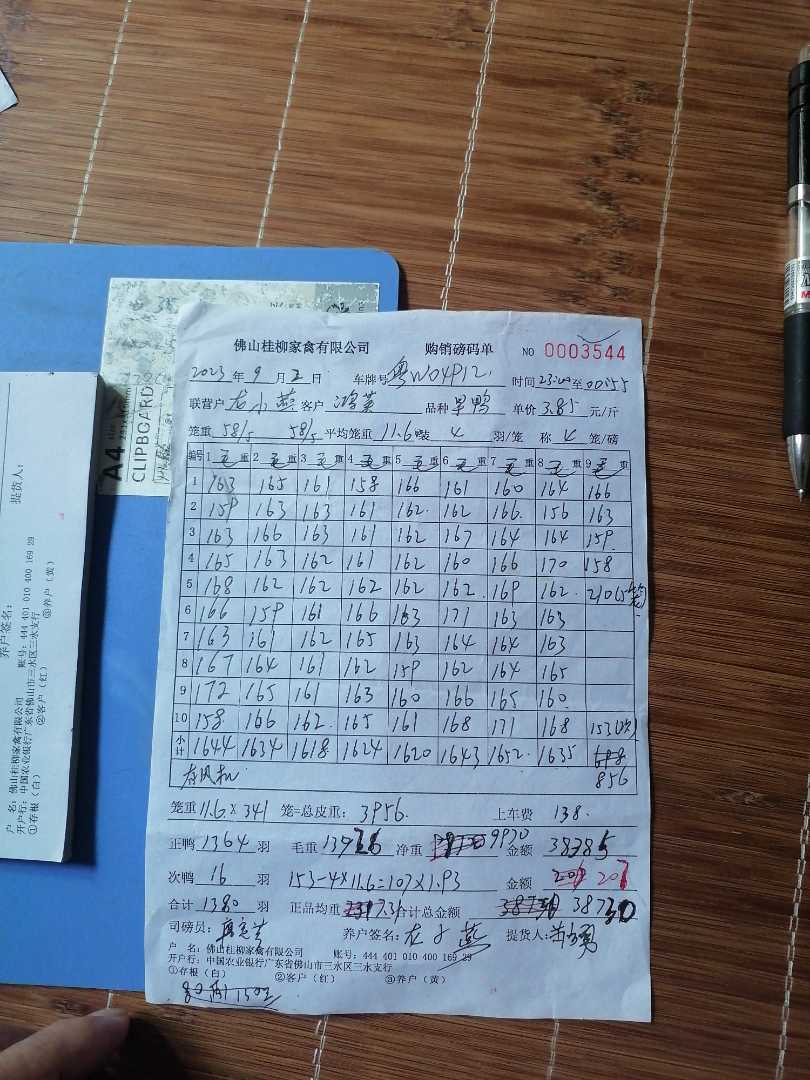 佛山桂柳家禽有限公司 购销磅码单 NO 0003544
2023年9月2日 车牌号粤W04P12 时间23:00至00:55
联营户 龙小燕 客户 鸿英 品种 旱鸭 单价3.85元/斤
笼重 58/5 58/5 平均笼重11.6 装 4 羽/笼 称 4 笼/磅
编号 1毛重 2毛重 3毛重 4毛重 5毛重 6毛重 7毛重 8毛重 9毛重
1 163 165 161 158 166 161 160 164 166
2 159 163 163 161 162 162 166 156 163
3 163 166 163 161 162 167 164 164 159
4 165 163 162 161 162 160 166 170 158
5 168 162 162 162 162 162 169 162 210(5笼)
6 166 159 161 166 163 171 163 163
7 163 161 162 165 163 164 164 163
8 167 164 161 162 159 162 164 165
9 172 165 161 163 160 166 165 160
10 158 166 162 165 161 168 171 168 153(次)
小计 1644 1634 1618 1624 1620 1643 1652 1635
856
有风机
笼重11.6×341 笼=总皮重: 3956. 上车费 138.
正鸭 1364 羽 毛重 净重 9970 金额 38385
次鸭 16 羽 153-4×11.6=107×1.93 金额 207
合计 1380 羽 正品均重 7.31 合计总金额 38730
司磅员: 养户签名: 龙小燕 提货人:
户 名: 佛山桂柳家禽有限公司 账号: 444 401 010 400 169 29
开户行: 中国农业银行广东省佛山市三水区三水支行
①存根(白) ②客户(红) ③养户(黄)
A4
CLIPBOARD
提货人:
养户签名:
户 名: 佛山桂柳家禽有限公司 账号: 444 401 010 400 169 29
开户行: 中国农业银行广东省佛山市三水区三水支行
①存根(白) ②客户(红) ③养户(黄)